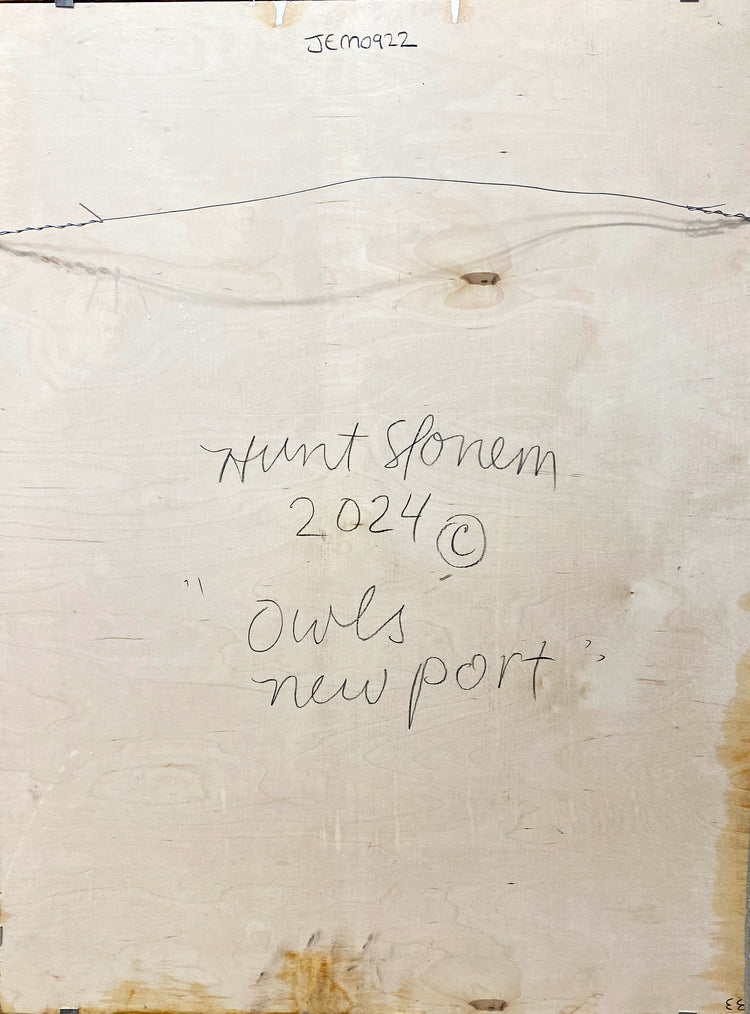 JEM0922
Hunt Slonem
2024 ©
"Owls
new port"
33